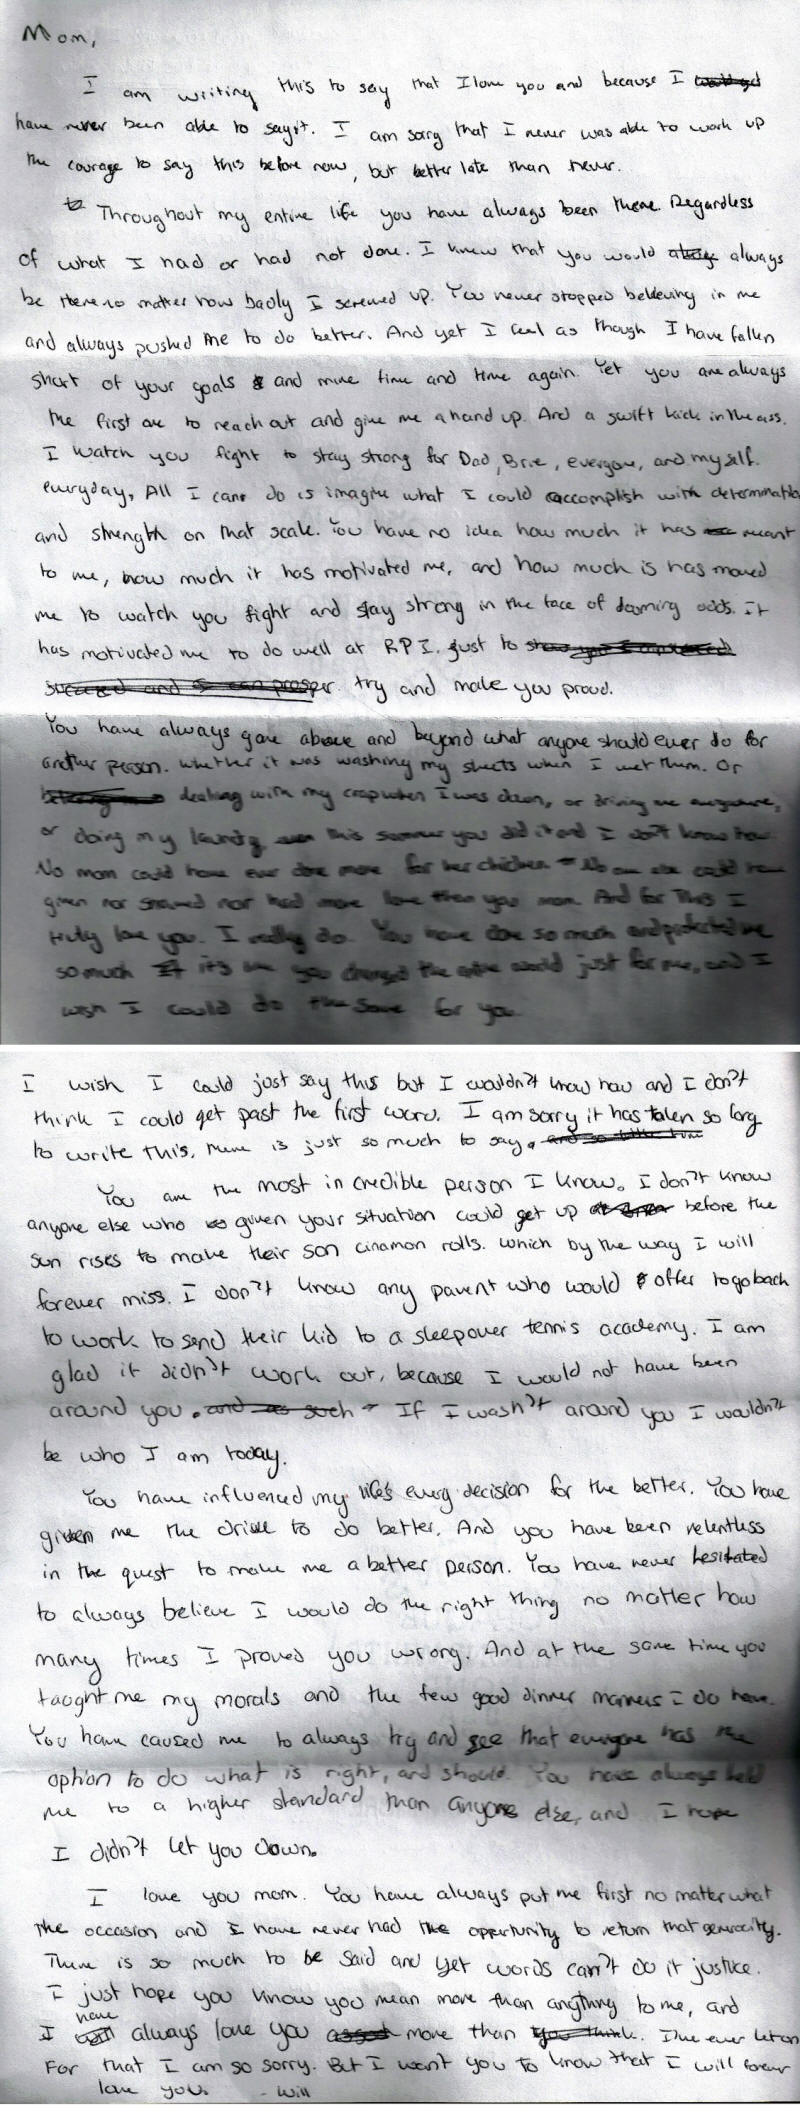 Mom,
I am writing this to say that I love you and because I
have never been able to say it. I am sorry that I never was able to work up
the courage to say this before now, but better late than never.
Throughout my entire life you have always been there. Regardless
of what I had or had not done. I knew that you would always
be there no matter how badly I screwed up. You never stopped believing in me
and always pushed me to do better. And yet I feel as though I have fallen
short of your goals and mine time and time again. Yet you are always
the first one to reach out and give me a hand up. And a swift kick in the ass.
I watch you fight to stay strong for Dad, Brie, everyone, and myself.
everyday, All I can do is imagine what I could accomplish with determination
and strength on that scale. You have no idea how much it has meant
to me, how much it has motivated me, and how much is has moved
me to watch you fight and stay strong in the face of daming odds. it
has motivated me to do well at RPI. just to show you I
succeed and can prosper. try and make you proud.
You have always gone above and beyond what anyone should ever do for
another person. whether it was washing my sheets when I wet them. Or
dealing with my crap when I was down, or driving me everywhere,
or doing my laundry even this summer you did it and I don't know how.
No mom could have ever done more for her children - No one else could have
given nor shared nor had more love than you mom. And for This I
truly love you. I really do. You have done so much and protected me
so much it's like you changed the entire world just for me, and I
wish I could do the same for you.
I wish I could just say this but I wouldn't know how and I don't
think I could get past the first word. I am sorry it has taken so long
to write this, there is just so much to say. and so little time
You are the most in credible person I know. I don't know
anyone else who given your situation could get up before the
sun rises to make their son cinamon rolls. which by the way I will
forever miss. I don't know any parent who would offer to go back
to work to send their kid to a sleepover tennis academy. I am
glad it didn't work out, because I would not have been
around you. and as such - If I wasn't around you I wouldn't
be who I am today.
You have influenced my life's every decision for the better. You have
given me the drive to do better. And you have been relentless
in the quest to make me a better person. You have never hesitated
to always believe I would do the right thing no matter how
many times I proved you wrong. And at the same time you
taught me my morals and the few good dinner manners I do have.
You have caused me to always try and see that everyone has the
option to do what is right, and should. You have always held
me to a higher standard than anyone else, and I hope
I didn't let you down.
I love you mom. You have always put me first no matter what
the occasion and I have never had the opportunity to return that generocity.
There is so much to be said and yet words can't do it justice.
I just hope you know you mean more than anything to me, and
I have always love you more than you think. I've ever let on
For that I am so sorry. But I want you to know that I will forever
love you. - Will